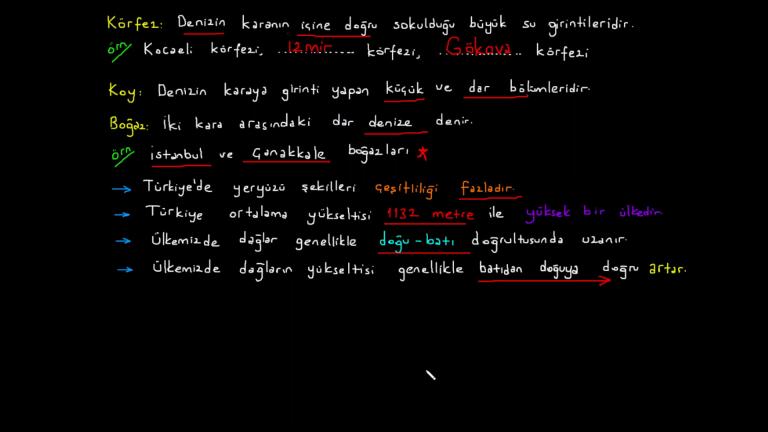 Körfez: Denizin karanın içine doğru sokulduğu büyük su girintileridir.
örn/ Kocaeli körfezi, ...İzmir... körfezi, ...Gökova... körfezi
Koy: Denizin karaya girinti yapan küçük ve dar bölümleridir.
Boğaz: İki kara arasındaki dar denize denir.
örn/ istanbul ve Çanakkale boğazları *
→ Türkiye'de yeryüzü şekilleri çeşitliliği fazladır.
→ Türkiye ortalama yükseltisi 1132 metre ile yüksek bir ülkedir
→ Ülkemizde dağlar genellikle doğu-batı doğrultusunda uzanır.
→ Ülkemizde dağların yükseltisi genellikle batıdan doğuya doğru artar.